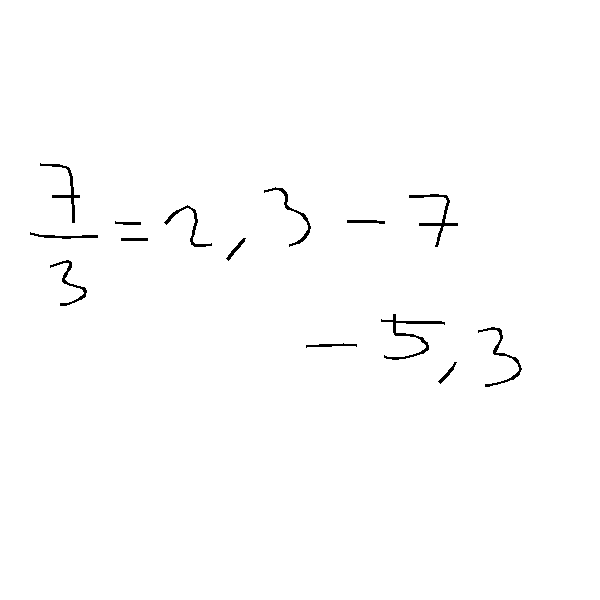 7/3 = 2,3 - 7
- 5,3